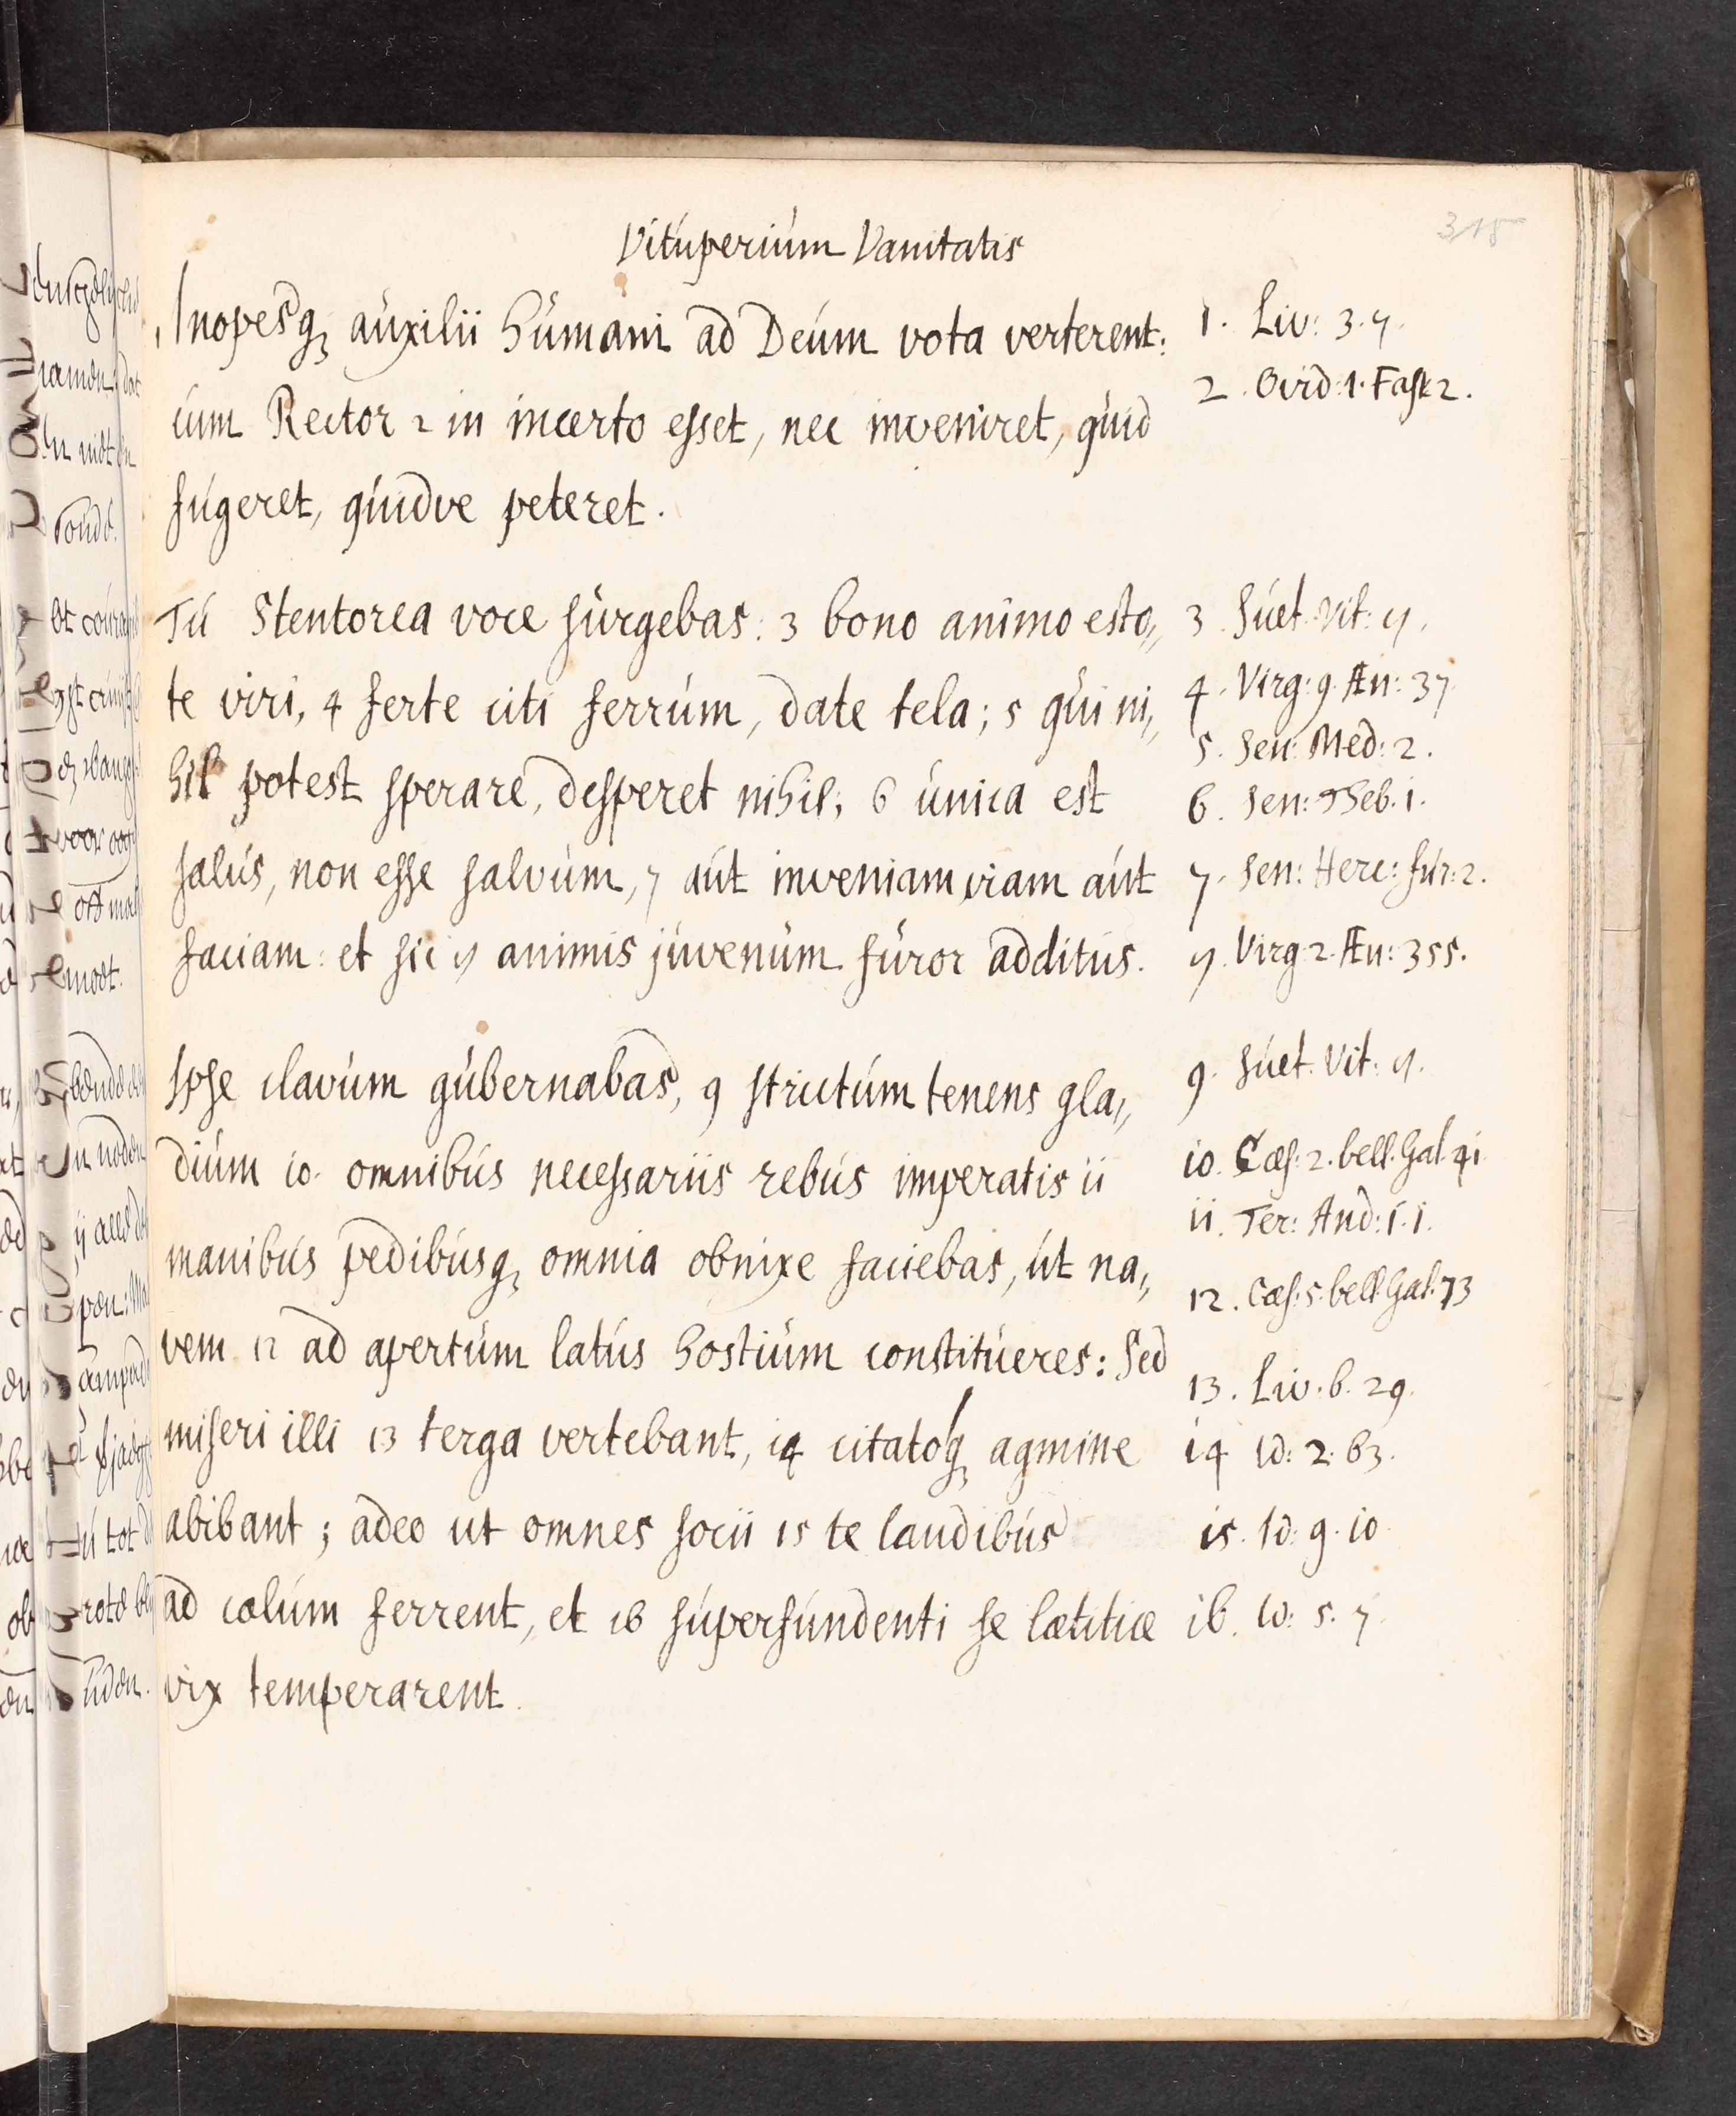 Vituperium Vanitatis
318
1 Inopesq; auxilii humani ad Deum vota verterent:
cum Rector 2 in incerto esset, nec inveniret, quid
fugeret, quidve peteret.
Tu Stentorea voce surgebas: 3 bono animo esto„
te viri, 4 ferte citi ferrum, date tela; 5 qui ni„
hil potest sperare, desperet nihil; 6 unica est
salus, non esse salvum, 7 aut inveniam viam aut
faciam: et sic 8 animis juvenum furor additus.
Ipse clavum gubernabas, 9 strictum tenens gla„
dium 10. omnibus necessariis rebus imperatis 11
manibus pedibusq; omnia obnixe faciebas, ut na„
vem 12 ad apertum latus hostium constitueres: Sed
miseri illi 13 terga vertebant, 14 citatoq; agmine
abibant; adeo ut omnes socii 15 te laudibus
ad cælum ferrent, et 16 superfundenti se lætitiæ
vix temperarent.
1. Liv: 3.7.
2. Ovid: 1. Fast 2.
3. Suet. Vit: 8.
4. Virg: 9. Æn: 37
5. Sen: Med: 2.
6. Sen: Theb. 1.
7. Sen: Herc: fur: 2.
8. Virg 2. Æn: 355.
9. Suet. Vit: 8.
10. Cæs: 2. bell. Gal. 21
11. Ter: And: 1. 1.
12. Cæs: 5. bell. Gal. 73
13. Liv. 6. 29.
14 Id: 2. 63.
15. Id: 9. 10
16. Id: 5. 7